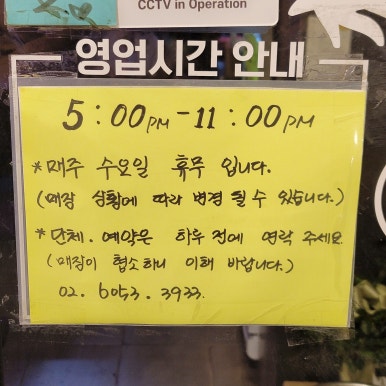 CCTV in Operation
영업시간 안내
5:00PM - 11:00PM
* 매주 수요일 휴무 입니다.
(매장 상황에 따라 변경 될 수 있습니다.)
* 단체. 예약은 하루 전에 연락 주세요.
(매장이 협소하니 이해 바랍니다.)
02. 6053. 3933.